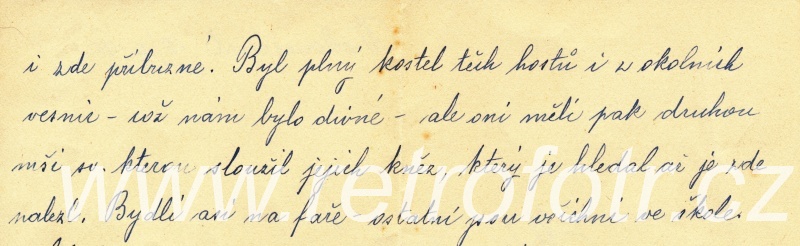 i zde příbuzné. Byl plný kostel těch hostů i z okolních
vesnic - což nám bylo divné - ale oni měli pak druhou
mši sv. kterou sloužil jejich kněz, který je hledal až je zde
nalezl. Bydlí asi na faře ostatní jsou všichni ve škole.
www.retrofotr.cz